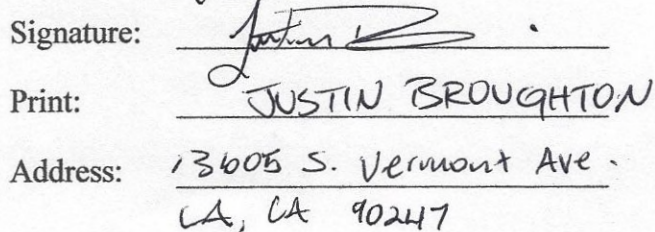 Signature:
Print: JUSTIN BROUGHTON
Address: 13605 S. Vermont Ave.
LA, CA 90247